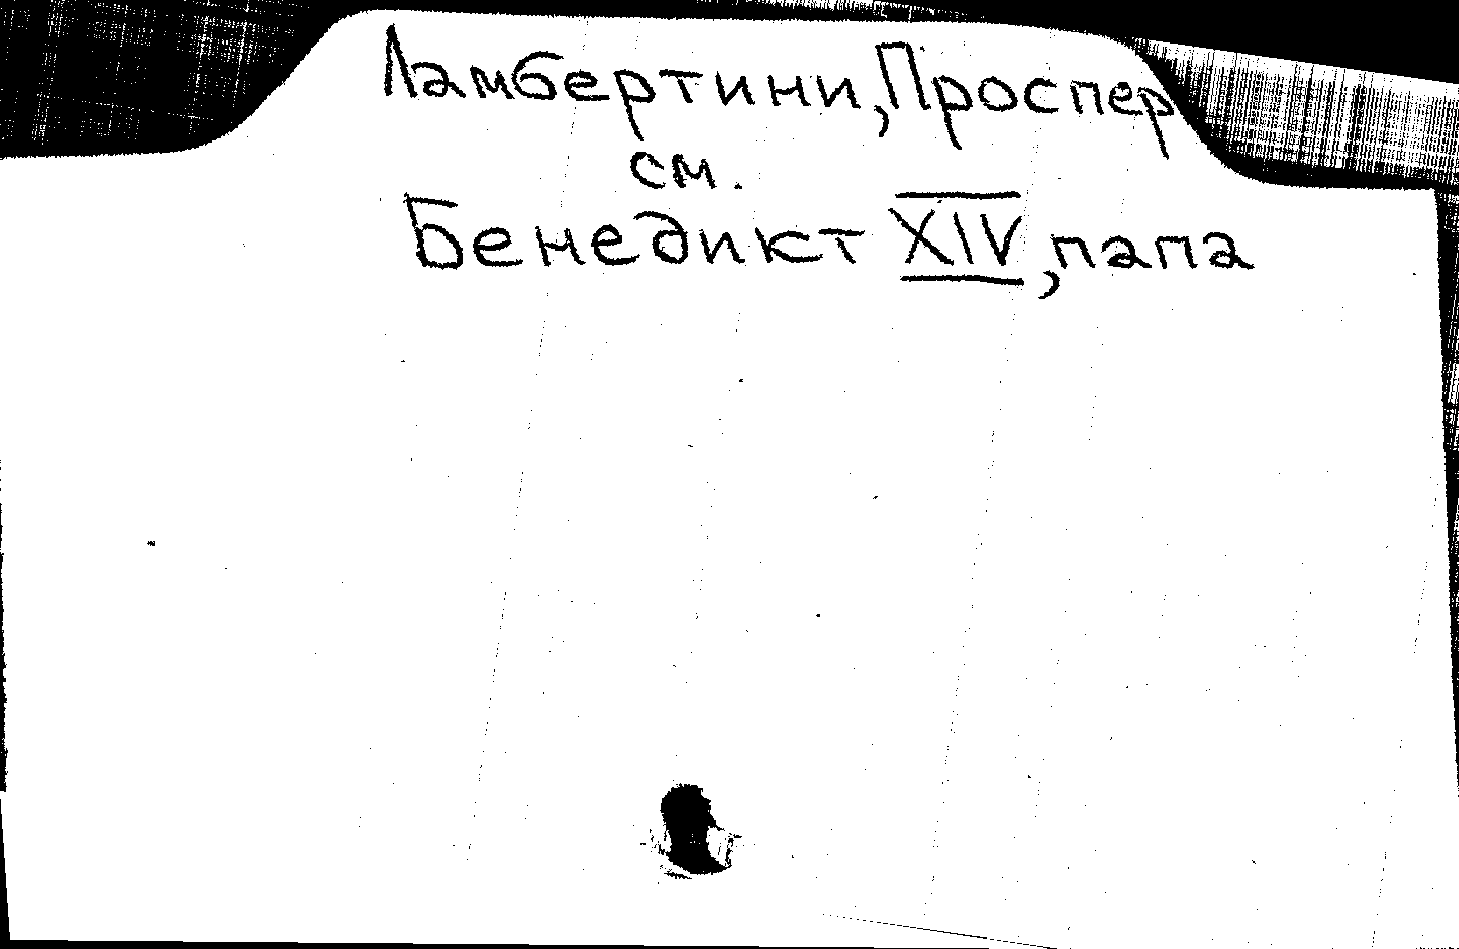 Ламбертини, Проспер
см.
Бенедикт XIV, папа